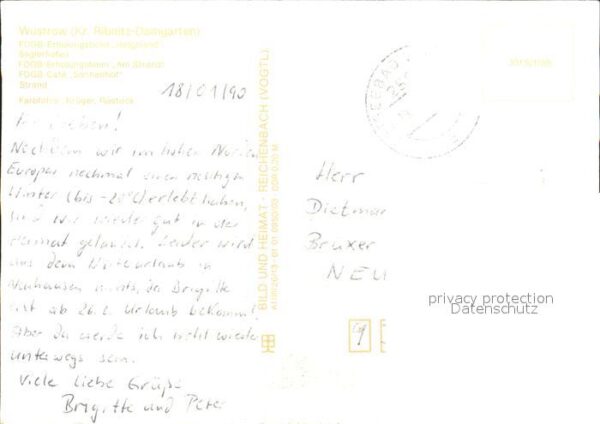 Wustrow (Kr. Ribnitz-Damgarten)
FDGB-Erholungsheim
Seglerhafen
FDGB-Erholungsheim „Am Strand“
FDGB-Café „Sonnenhof“
Strand
Farbfotos: Krüger, Rostock
18/01/90
Ihr Lieben!
Nachdem wir im hohen Norden
Europas nochmal einen richtigen
Winter (bis -20°C) erlebt haben,
sind wir wieder gut in der
Heimat gelandet. Leider wird
aus dem Winterurlaub in
Neuhausen nichts, da Brigitte
erst ab 26.2. Urlaub bekommt.
Aber da werde ich nicht wieder
unterwegs sein.
Viele liebe Grüße
Brigitte und Peter
BILD UND HEIMAT · REICHENBACH (VOGTL)
Herr
Dietmar
Bruxer
NEU
privacy protection
Datenschutz